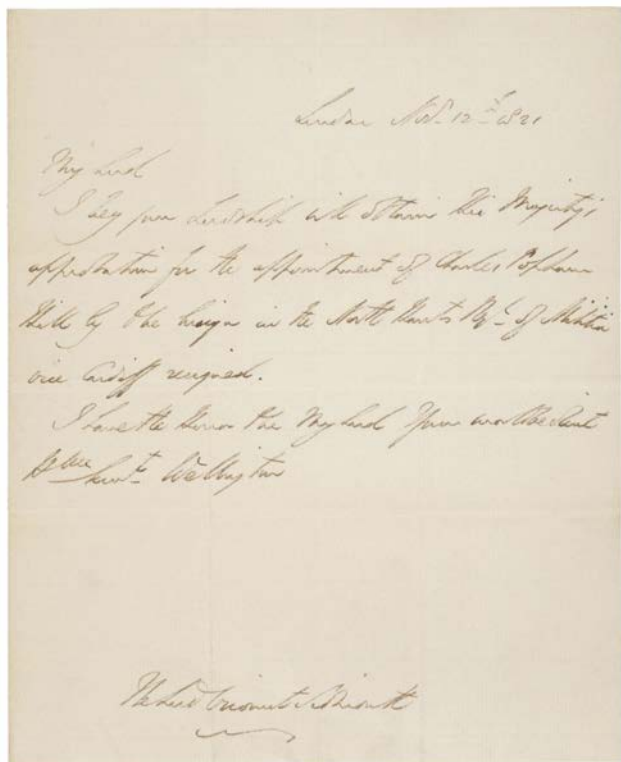 London Nov. 12th 1821
My Lord
I beg your Lordship will obtain His Majesty's
approbation for the appointment of Charles Popham
Hill to be Ensign in the North Hants Regt. of Militia
vice Cardiff resigned.
I have the Honor to be My Lord Your most obedient
Humble Servt. Wellington
The Lord Viscount Sidmouth